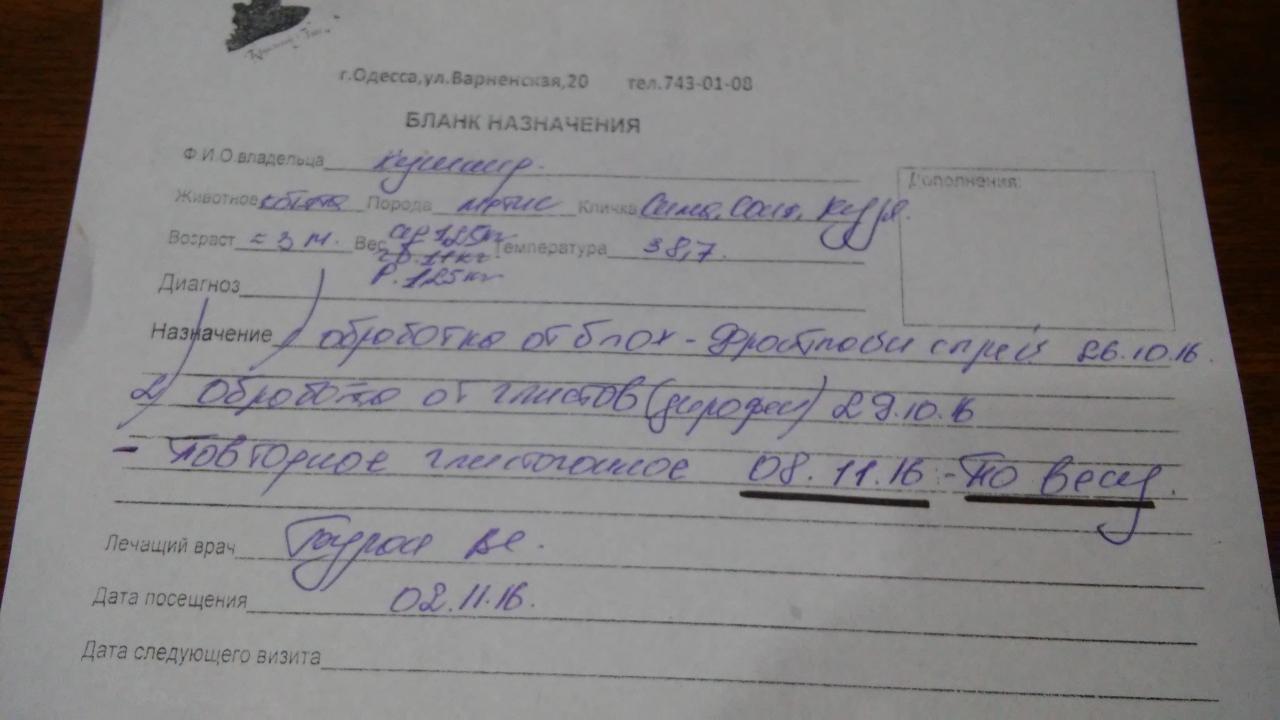 г.Одесса,ул.Варненская,20 тел.743-01-08
БЛАНК НАЗНАЧЕНИЯ
Ф.И.О.владельца Кушнир.
Дополнения:
Животное котята Порода метис Кличка Сима, Соля, Кузя.
Возраст ≈ 3 м. Вес Ср 1.25кг Температура 38,7.
гр. 1.1 кг
Р. 1.25 кг
Диагноз
Назначение 1) обработка от блох - Фронтлайн спрей 26.10.16.
2) Обработка от глистов (дирофен) 29.10.16
- Повторное глистогонное 08.11.16 - по весу.
Лечащий врач
Дата посещения 02.11.16.
Дата следующего визита